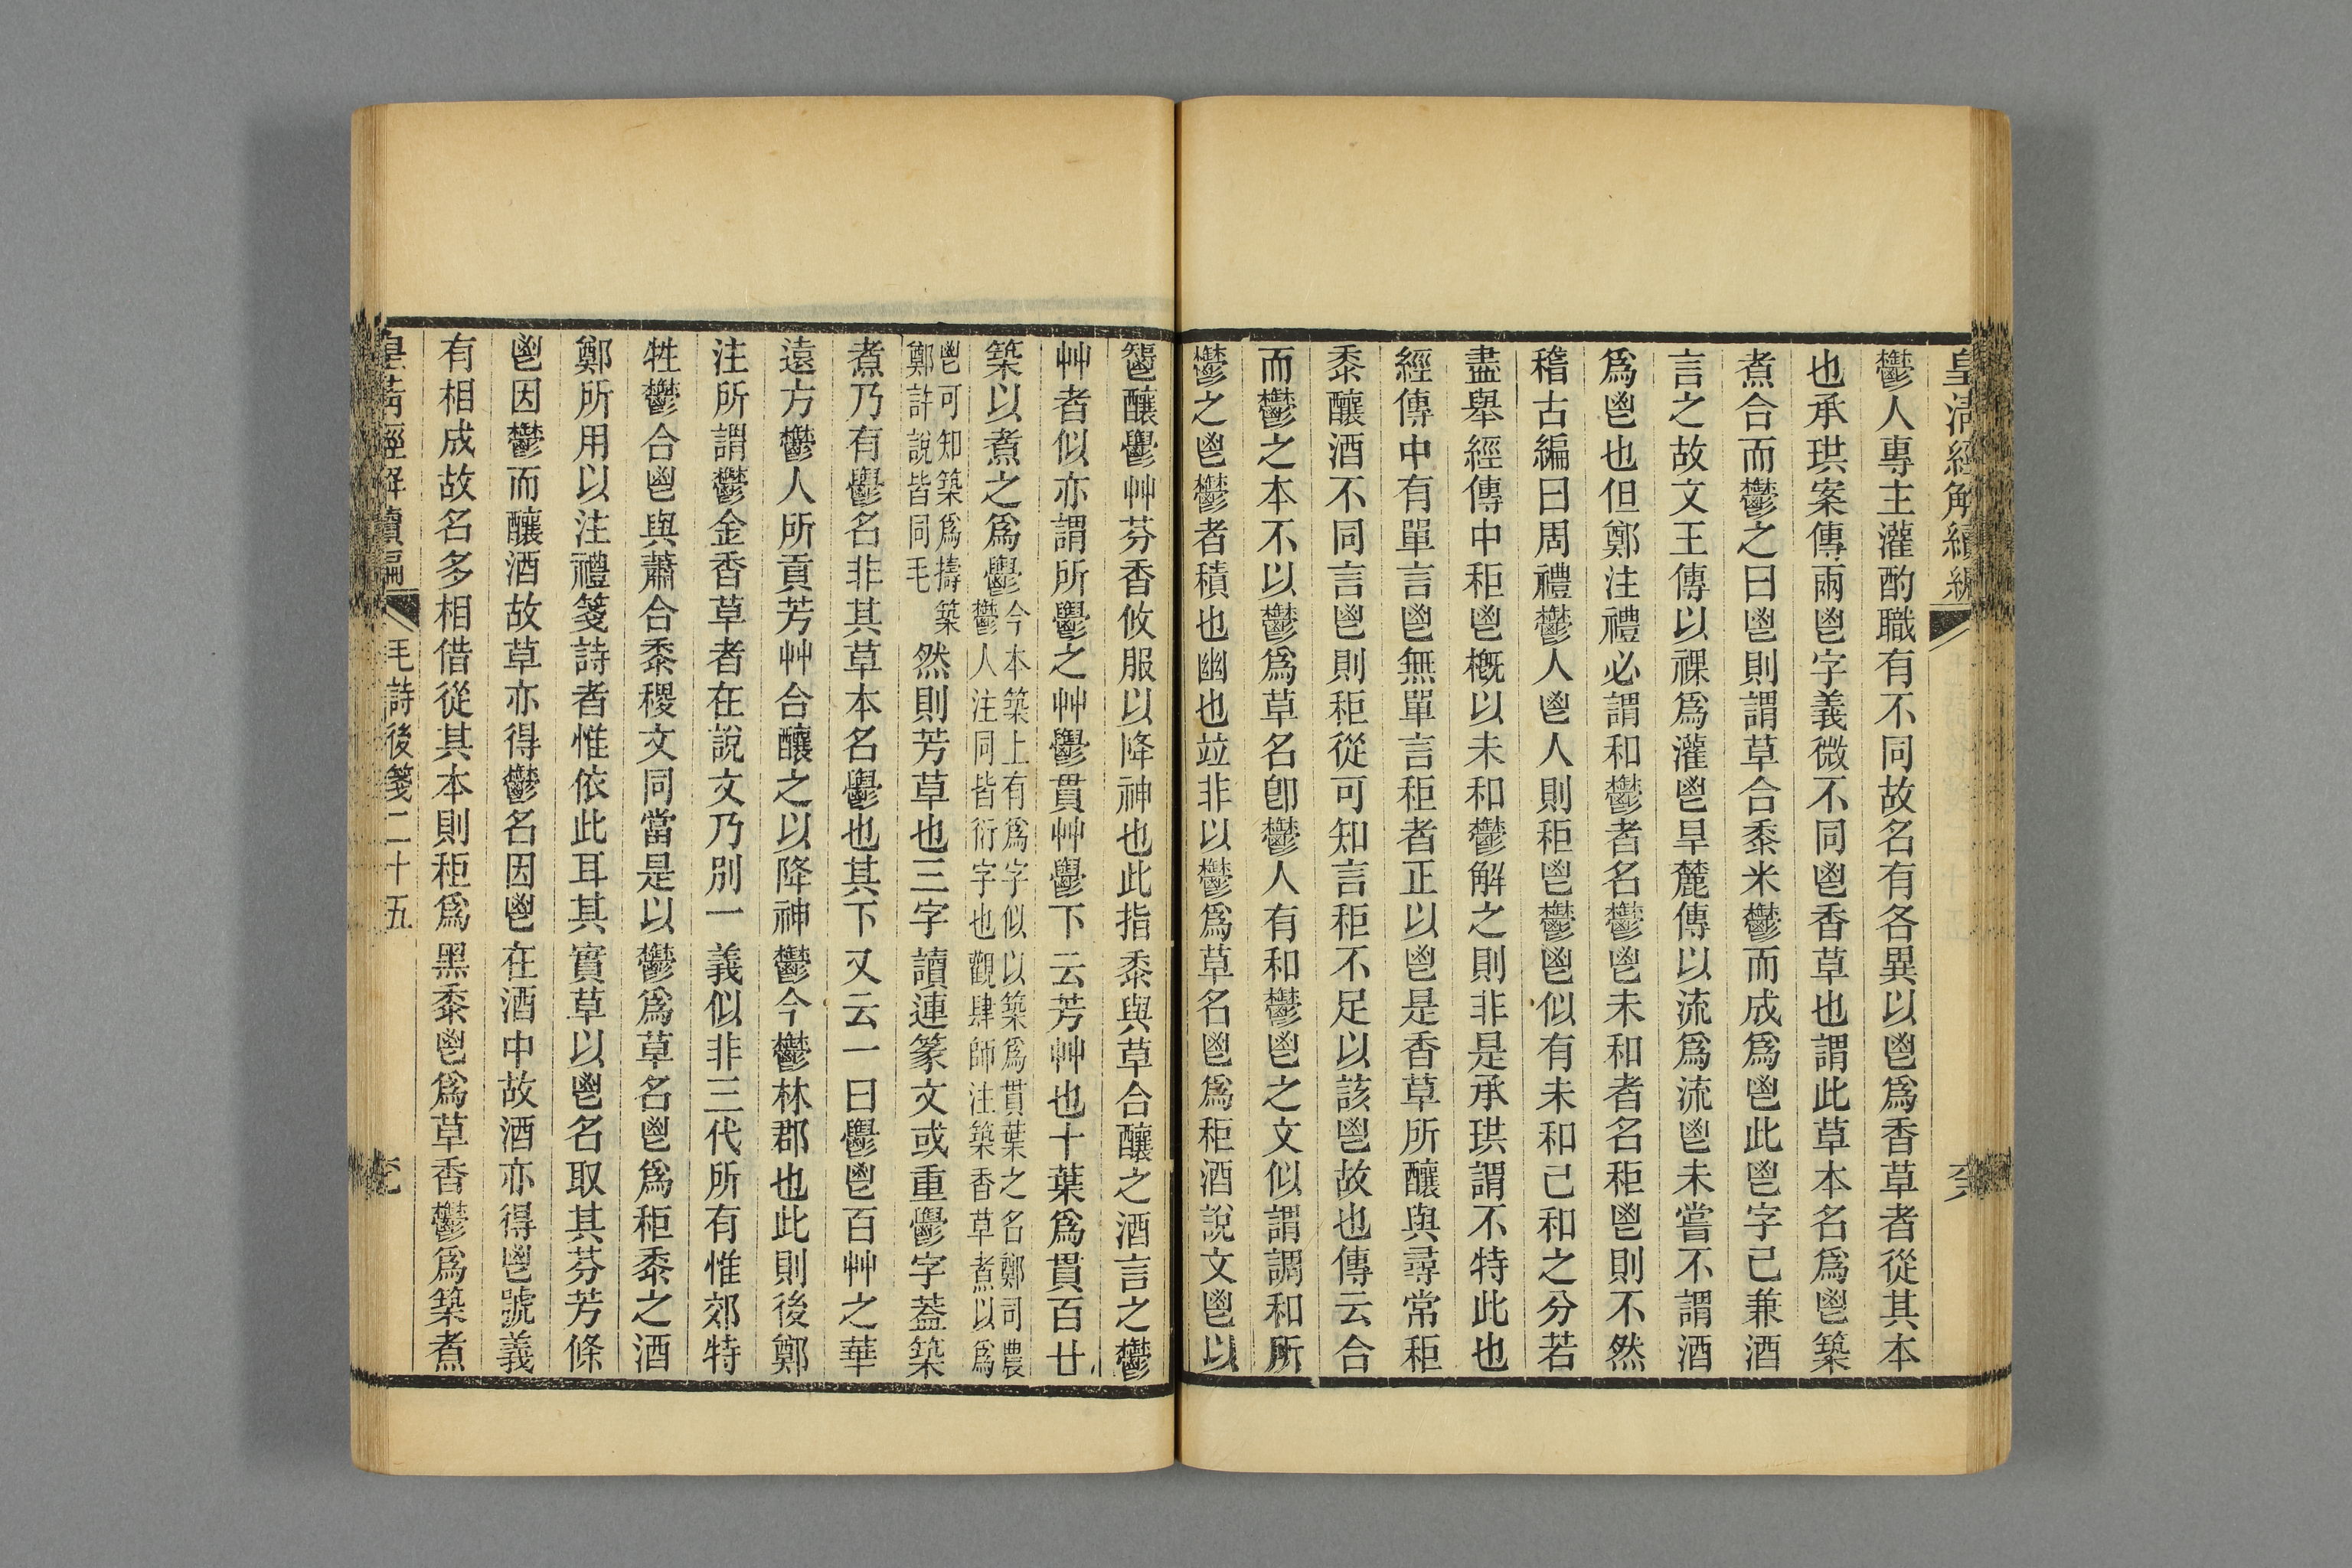 皇清經解續編
鬱人專主灌酌職有不同故名有各異以鬯爲香草者從其本
也承珙案傳兩鬯字義微不同鬯香草也謂此草本名爲鬯築
煮合而鬱之曰鬯則謂草合黍米鬱而成爲鬯此鬯字己兼酒
言之故文王傳以祼爲灌鬯旱麓傳以流爲流鬯未嘗不謂酒
爲鬯也但鄭注禮必謂和鬱者名鬱鬯未和者名秬鬯則不然
稽古編曰周禮鬱人鬯人則秬鬯鬱鬯似有未和己和之分若
盡舉經傳中秬鬯槪以未和鬱解之則非是承珙謂不特此也
經傳中有單言鬯無單言秬者正以鬯是香草所釀與尋常秬
黍釀酒不同言鬯則秬從可知言秬不足以該鬯故也傳云合
而鬱之本不以鬱爲草名卽鬱人有和鬱鬯之文似謂調和所
鬱之鬯鬱者積也幽也竝非以鬱爲草名鬯爲秬酒說文鬯以
䰞釀鬱艸芬香攸服以降神也此指黍與草合釀之酒言之鬱
艸者似亦謂所鬱之艸鬱貫艸鬱下云芳艸也十葉爲貫百廿
築以煮之爲鬱今本築上有爲字似以築爲貫葉之名鄭司農
鬱人注同皆衍字也觀肆師注築香草煮以爲
鬯可知築爲擣築
鄭許說皆同毛然則芳草也三字讀連篆文或重鬱字蓋築
煮乃有鬱名非其草本名鬱也其下又云一曰鬱鬯百艸之華
遠方鬱人所貢芳艸合釀之以降神鬱今鬱林郡也此則後鄭
注所謂鬱金香草者在說文乃別一義似非三代所有惟郊特
牲鬱合鬯與蕭合黍稷文同當是以鬱爲草名鬯爲秬黍之酒
鄭所用以注禮箋詩者惟依此耳其實草以鬯名取其芬芳條
鬯因鬱而釀酒故草亦得鬱名因鬯在酒中故酒亦得鬯號義
有相成故名多相借從其本則秬爲黑黍鬯爲草香鬱爲築煮
皇清經解續編 毛詩後箋二十五